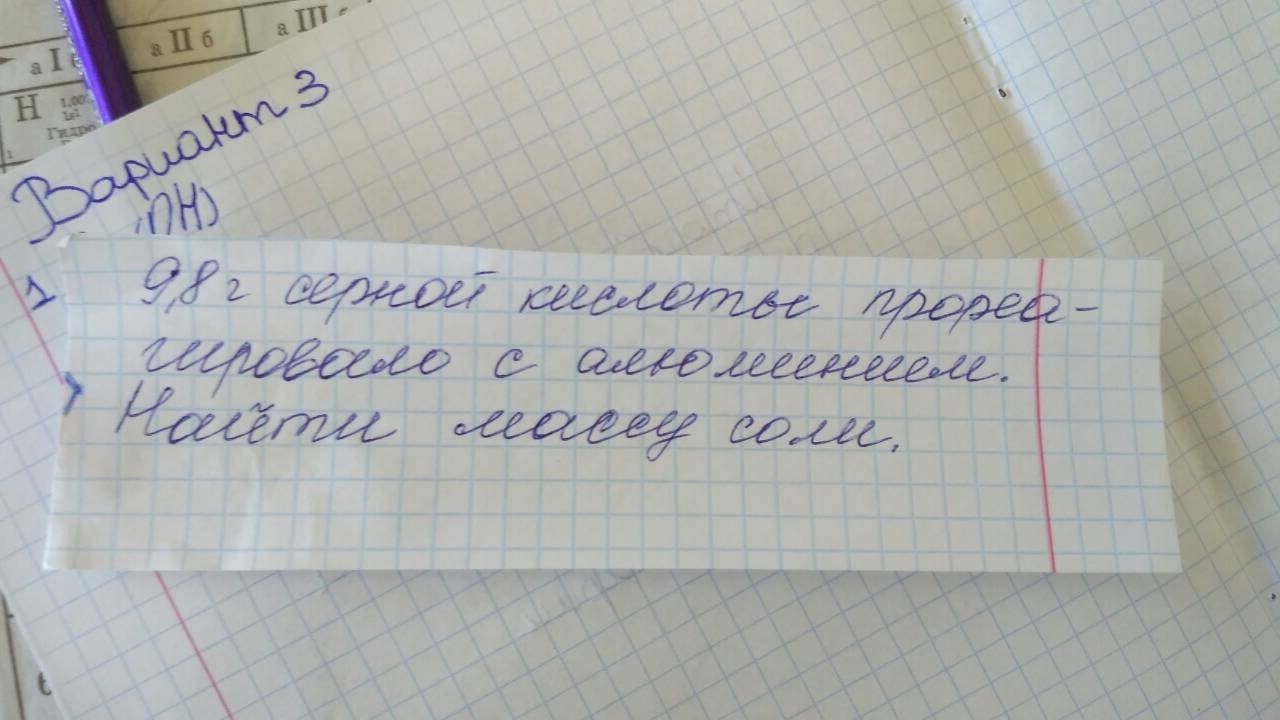 а I б
а II б
а III б
Н
1,00
1s¹
Гидро
1
Вариант 3
1
9,8 г серной кислоты прореа-
гировало с алюминием.
Найти массу соли.
6